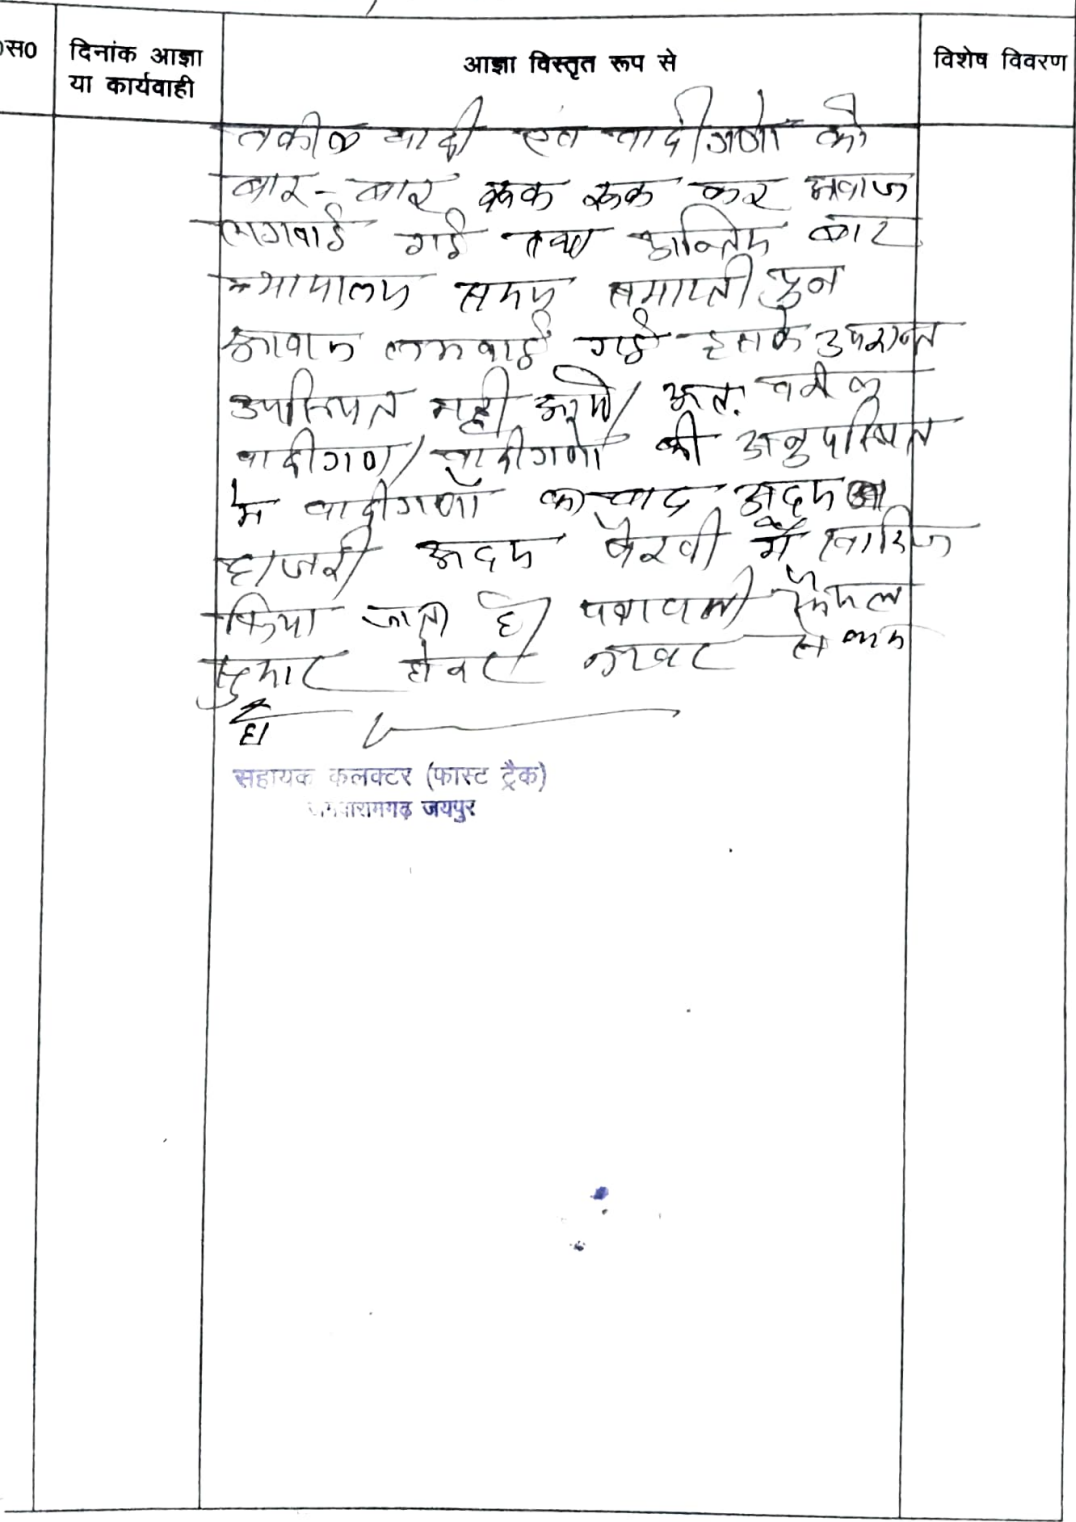 स0
दिनांक आज्ञा या कार्यवाही
आज्ञा विस्तृत रूप से
विशेष विवरण
वकील वादी एव वादीगणो को
बार-बार रूक रूक कर आवाज
लगवाई गई तथा अन्तिम बार
न्यायालय समय समाप्ती पुन
आवाज लगवाई गई इसके उपरान्त
उपस्थित नही आये/ अतः वकील
वादीगण/वादीगणो की अनुपस्थित
मे वादीगणों का वाद अदम
हाजरी अदम पैरवी में खारिज
किया जाता है/ पत्रावली फैसल
सुमार होकर नम्बर से कम
हो
सहायक कलक्टर (फास्ट ट्रैक)
जमवारामगढ़ जयपुर